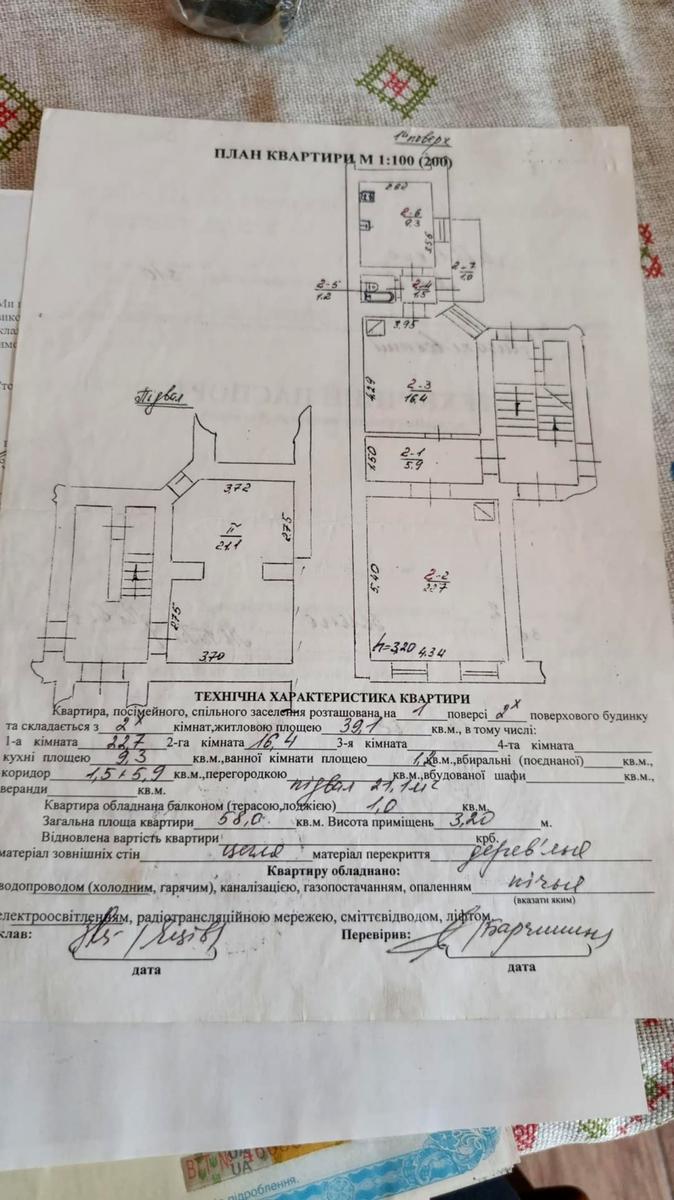 1й поверх
ПЛАН КВАРТИРИ М 1:100 (200)
2.60
2-6
9.3
3.56
2-7
1.0
2-5
1.2
2-4
1.5
3.95
4.29
2-3
16.4
Підвал
1.50
2-1
5.9
3.72
2.75
IІ
21.1
5.40
2-2
22.7
2.75
3.70
h=3,20
4.34
ТЕХНІЧНА ХАРАКТЕРИСТИКА КВАРТИРИ
Квартира, посімейного, спільного заселення розташована на 1 поверсі 2х поверхового будинку
та складається з 2х кімнат,житловою площею 39,1 кв.м., в тому числі:
1-а кімната 22,7 2-га кімната 16,4 3-я кімната 4-та кімната
кухні площею 9,3 кв.м.,ванної кімнати площею 1,2 кв.м.,вбиральні (поєднаної) кв.м.,
коридор 1,5+5,9 кв.м.,перегородкою кв.м.,вбудованої шафи кв.м.,
веранди кв.м. підвал 21,1 м²
Квартира обладнана балконом (терасою,лоджією) 1,0 кв.м.
Загальна площа квартири 58,0 кв.м. Висота приміщень 3,20 м.
Відновлена вартість квартири крб.
матеріал зовнішніх стін цегла матеріал перекриття дерев'яне
Квартиру обладнано:
водопроводом (холодним, гарячим), каналізацією, газопостачанням, опаленням пічне
(вказати яким)
електроосвітленням, радіотрансляційною мережею, сміттєвідводом, ліфтом
клав: Перевірив:
дата дата
UA
UA
ідроблення.